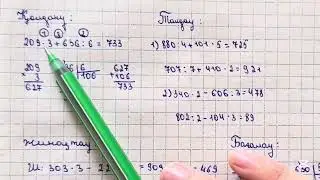 Қолдану:
① ③ ②
209 · 3 + 636 : 6 = 733
209
3
627
6
106
627
+106
733
Талдау:
1) 880 : 4 + 101 · 5 = 725
707 : 7 + 410 · 2 = 921
2) 340 · 2 - 606 : 3 = 478
802 : 2 - 104 · 3 = 89
Жинақтау:
Ш: 303 · 3 - 22
= 909
- 469
Бағалау:
630